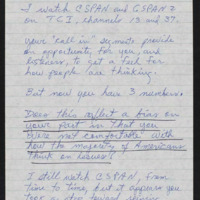 I watch CSPAN and CSPAN 2
on TCI, channels 19 and 37.
Your "Call in" segments provide
an opportunity, for you, and
listeners, to get a feel for
how people are thinking.
But now you have 3 members.
Does this reflect a bias on
your part in that you
are not comfortable with
how the majority of Americans
think on issues?
I still watch CSPAN, from
time to time, but it appears you